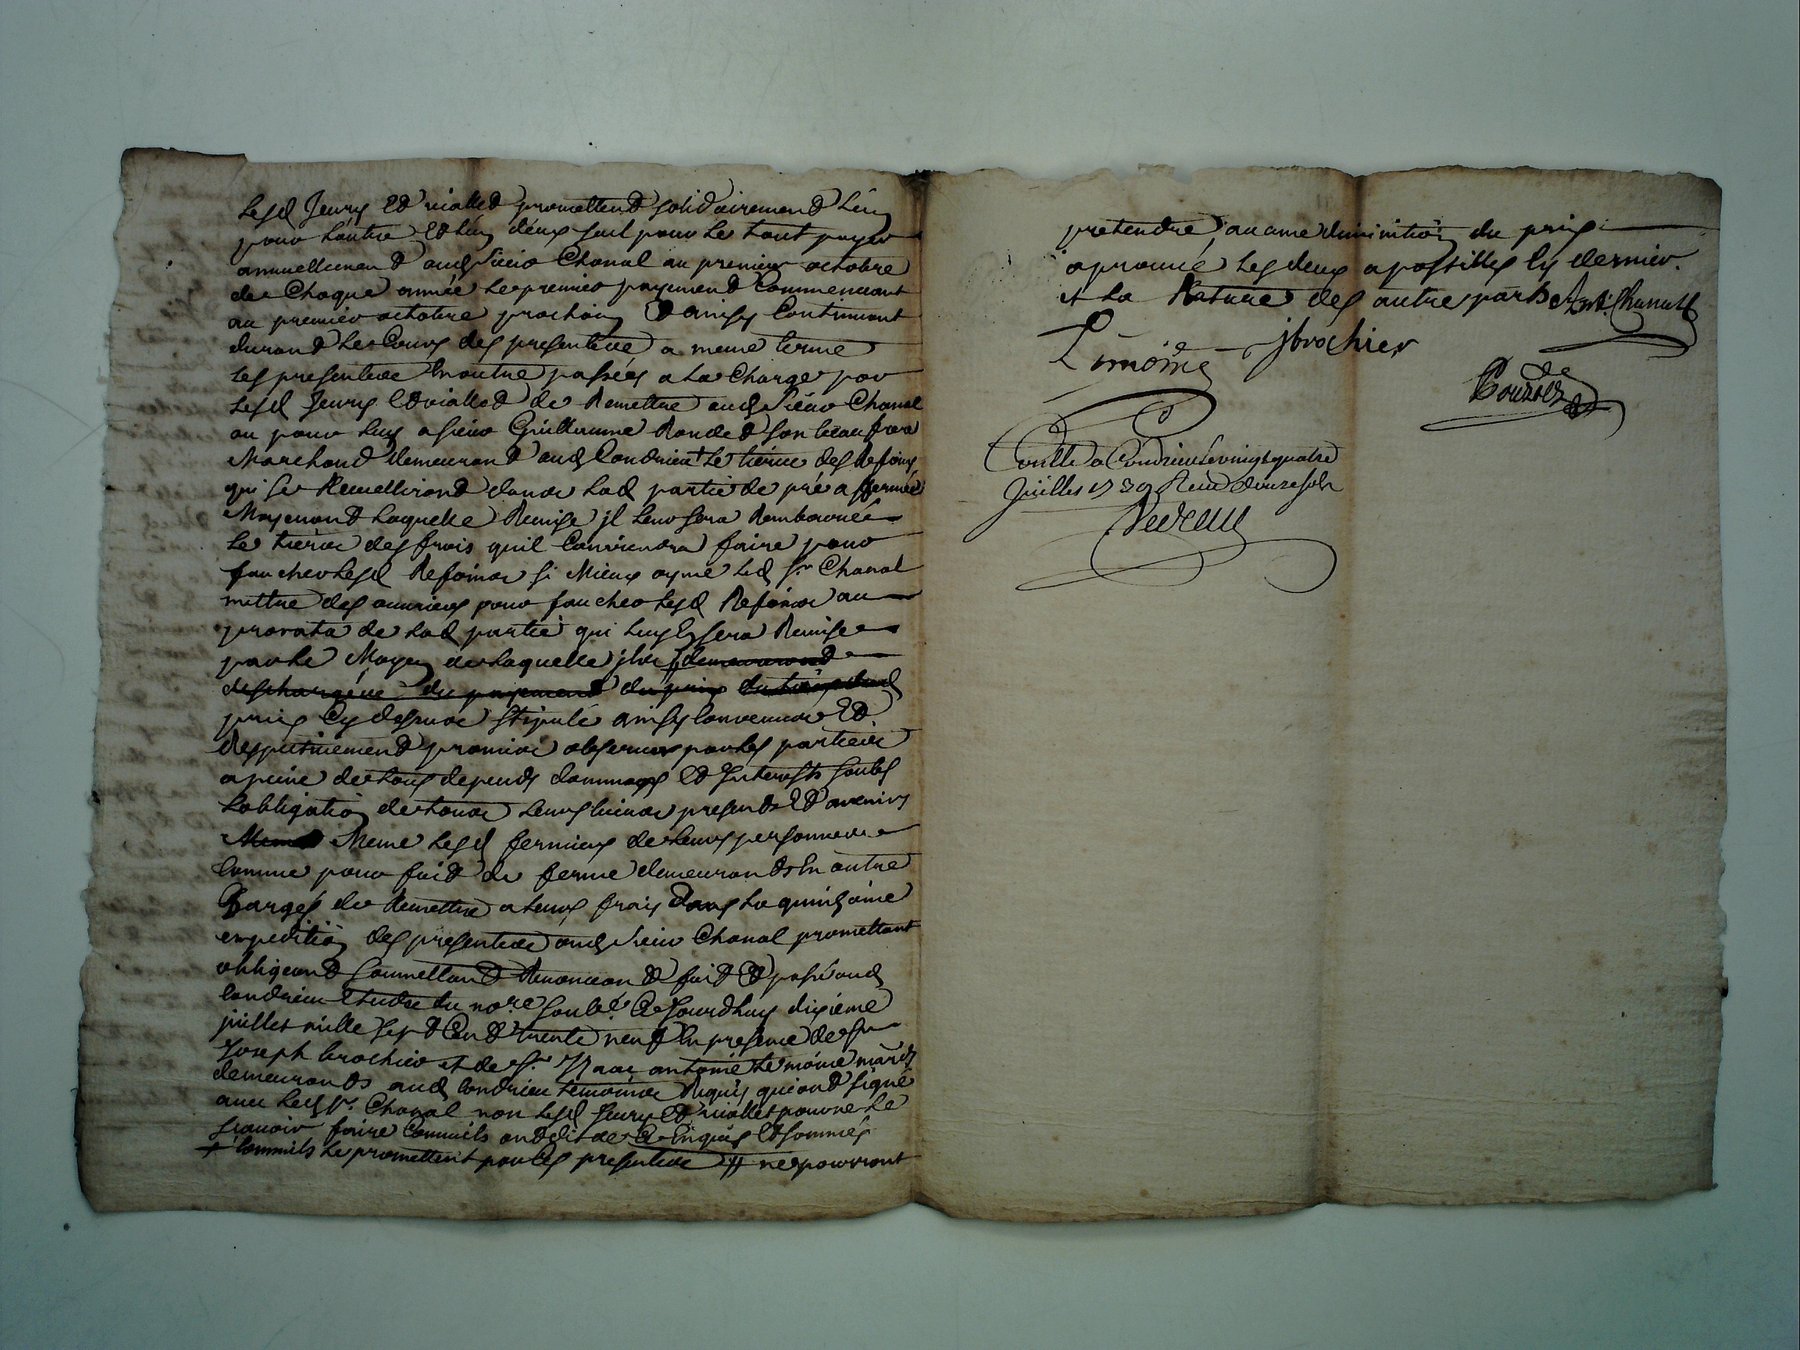 lesd Jeury et viallet promettent solidairement l'un
pour lautre et lun deux seul pour le tout payer
annuellement aud sieur Chanal au premier octobre
de Chaque année le premier payement Commencant
au premier octobre prochain et ainsy Continuant
durant le Cours des presentes a meme terme
les presentes en outre passées a la Charge par
lesd Jeury et viallet de Remettre aud sieur Chanal
ou pour luy a sieur Guillaume Rondet son beau frere
Marchand demeurant aud Condrieu le tierce des Refoins
qui se Recuelliront dans lad partie de pré affermée
Moyenant laquelle Remise jl leur sera Rembourcé
le tierce des frais quil Conviendra faire pour
faucher lesd Refoins si Mieux ayme led sr Chanal
mettre des ouvriers pour faucher lesd Refoins au
prorata de lad partie qui luy en sera Remise
par le Moyen de laquelle jls # demeureront
deschargés du payement du prix du
prix Cy dessus stipulé ainsy Convenus et
Respectivement promis observer par les parties
a peine de tous depends dommages et Interests soubs
lobligation de tous leurs biens presents et avenirs
Meme lesd fermiers de leurs personnes
Comme pour fait de ferme demeurants en outre
Chargés de Remettre a leurs frais dans la quinzaine
expedition des presentes aud sieur Chanal promettant
obligeant soumettant Renoncant et fait et passé aud
Condrieu Etude du nore soubné Ce Jourdhuy dixieme
juillet mille sept Cent trente neuf en presence de sr
Joseph brochier et de sr Isaac antoine Lemoine march
demeurants aud Condrieu temoins Requis qui ont signé
avec led sr Chanal non lesd Jeury et viallet pour ne le
scavoir faire Comme ils ont dit de Ce Enquis et sommés
+ Comme ils le promettent par Ces presentes # ne pourront
pretendre aucune diminution du prix
aprouvé les deux apostilles Cy dernier
et la Rature des autre parts Ant. Chanal
Lemoine jbrochier
Controllé a Condrieu le vingt quatre
Juillet 1739 Reçu douze sols